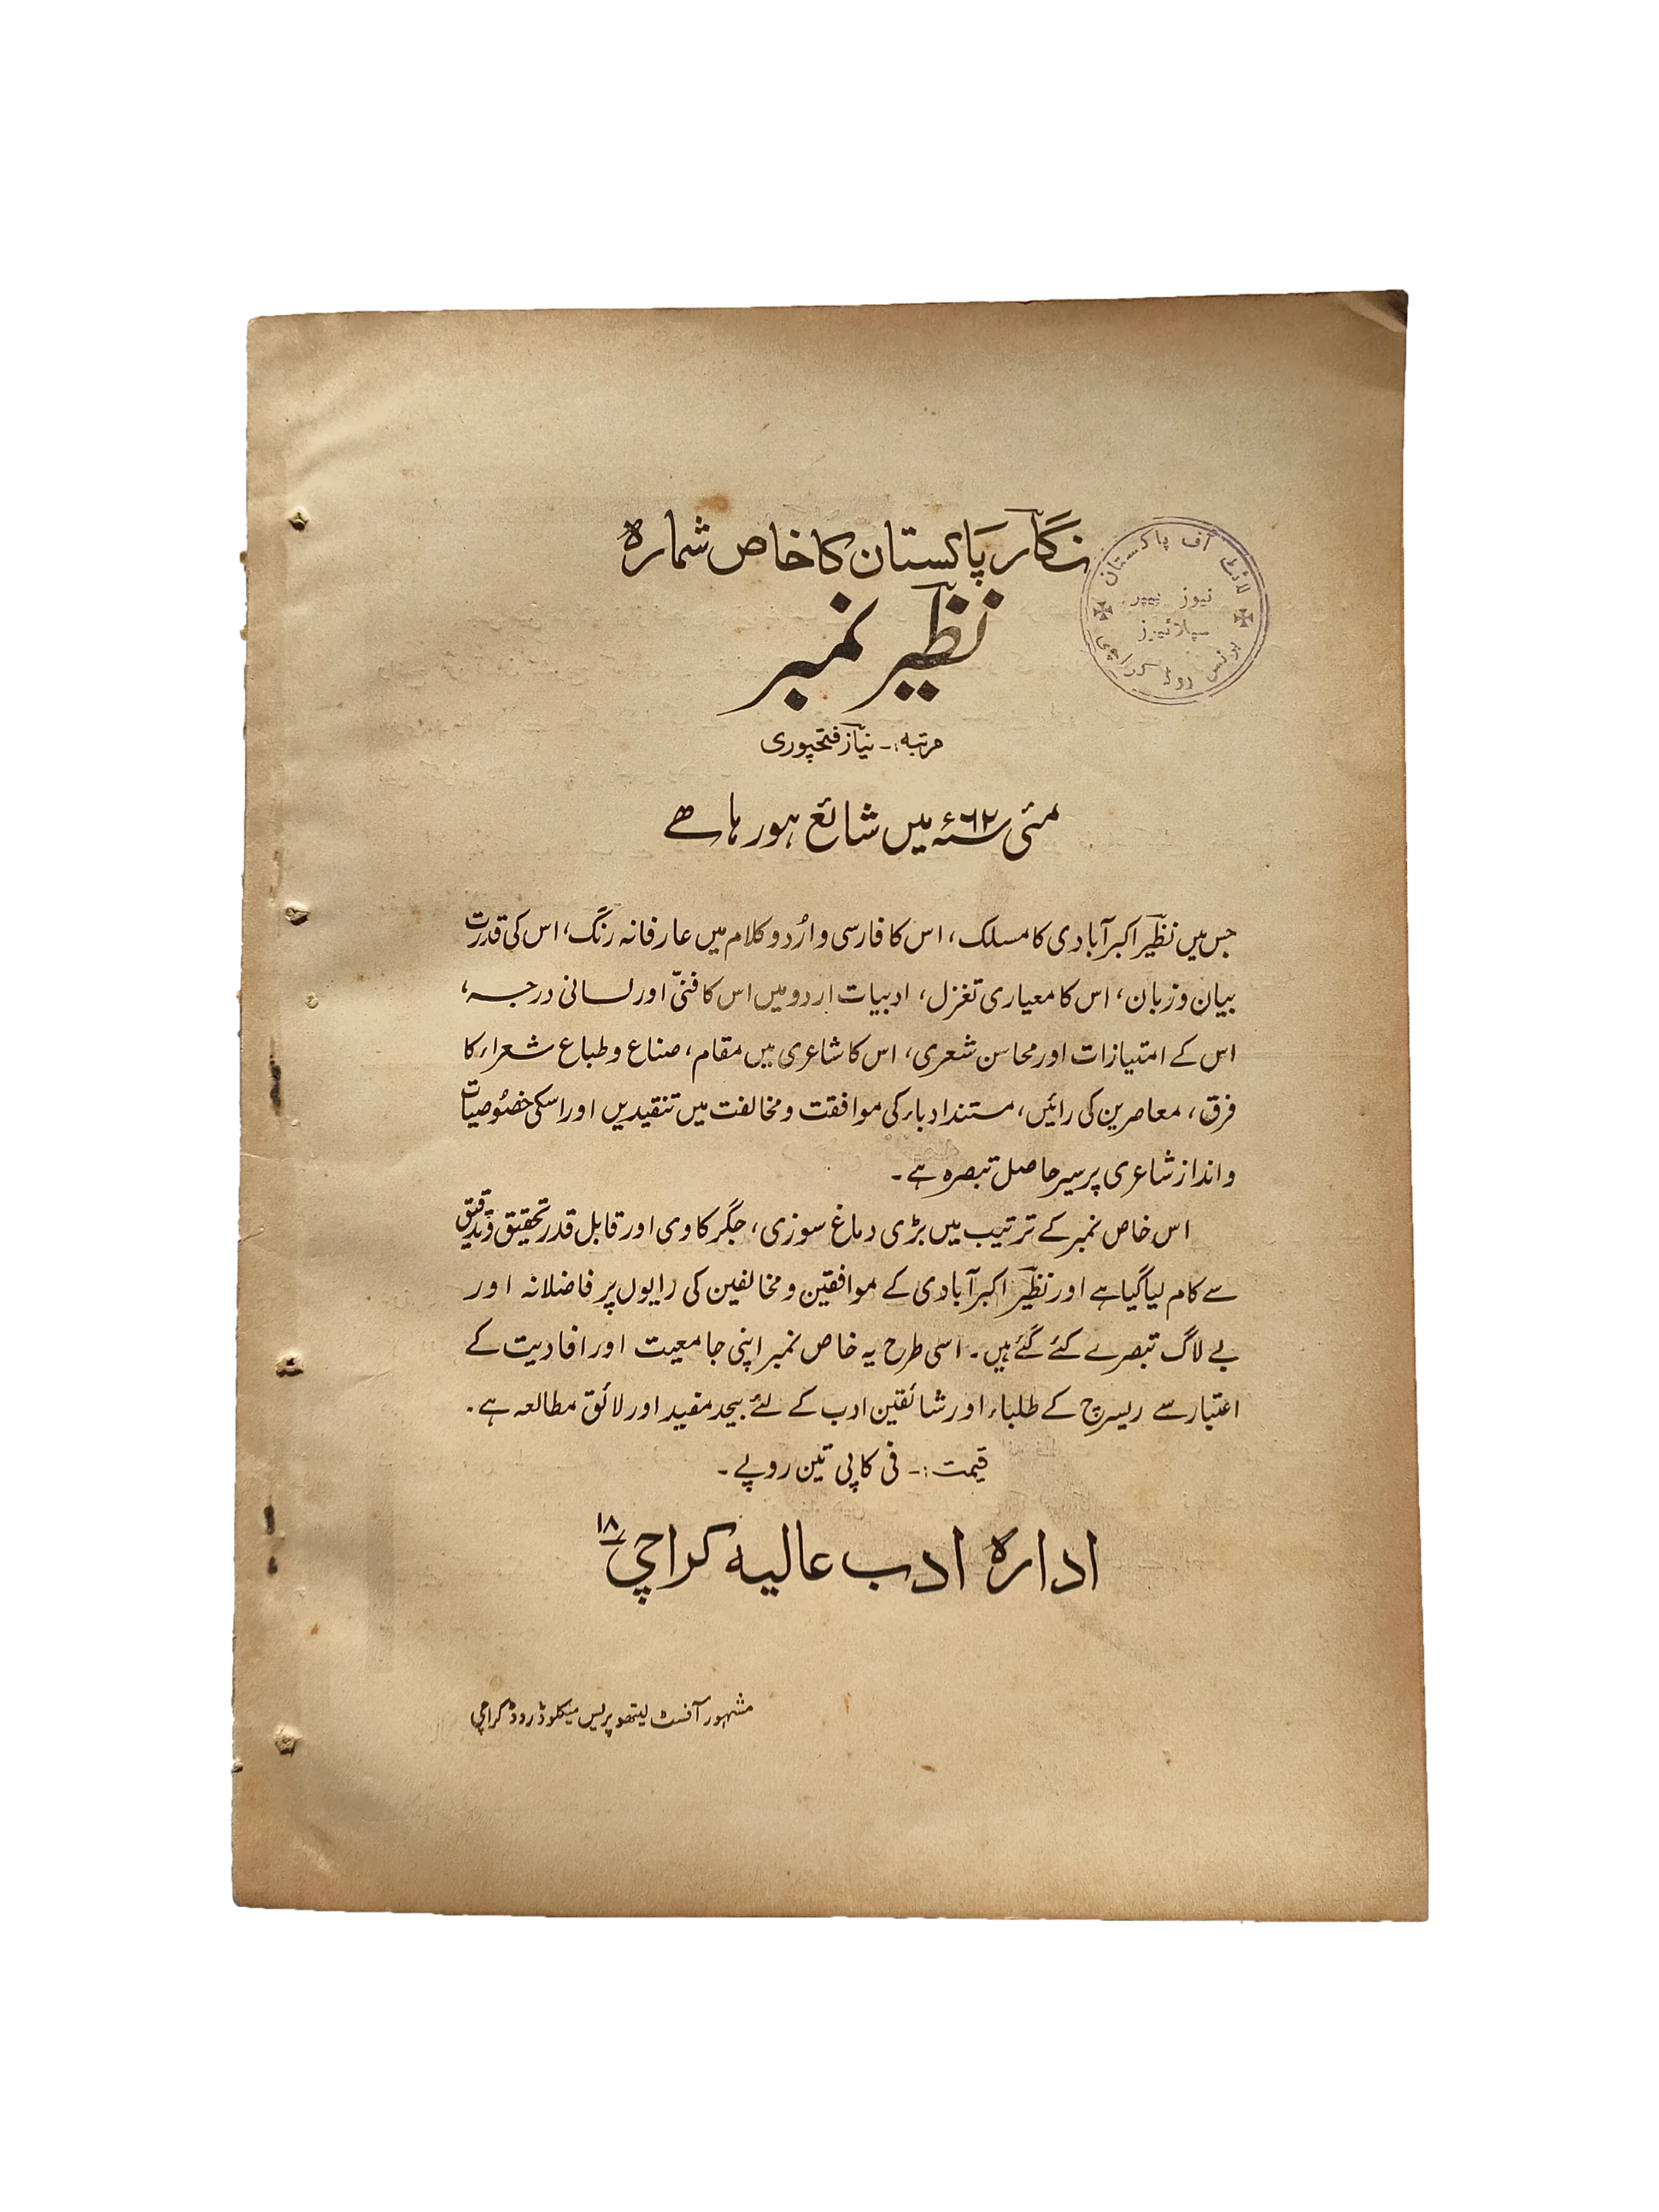 نگار پاکستان کا خاص شمارہ
نظیر نمبر
مرتبہ:۔ نیاز فتحپوری
مئی ۶۲ء میں شائع ہو رہا ھے
لائٹ آف پاکستان
نیوز پیپر
سپلائیرز
برنس روڈ کراچی
جس میں نظیر اکبرآبادی کا مسلک، اس کا فارسی و اُردو کلام میں عارفانہ رنگ، اس کی قدرت
بیان و زبان، اس کا معیاری تغزل، ادبیات اردو میں اس کا فنیّ اور لسانی درجہ،
اس کے امتیازات اور محاسن شعری، اس کا شاعری میں مقام، صناع و طباع شعراء کا
فرق، معاصرین کی رائیں، مستند ادباء کی موافقت و مخالفت میں تنقیدیں اور اسکی خصُوصیات
و انداز شاعری پر سیر حاصل تبصرہ ہے۔
اس خاص نمبر کے ترتیب میں بڑی دماغ سوزی، جگر کاوی اور قابل قدر تحقیق و تدقیق
سے کام لیا گیا ہے اور نظیر اکبرآبادی کے موافقین و مخالفین کی رایوں پر فاضلانہ اور
بے لاگ تبصرے کئے گئے ہیں۔ اسی طرح یہ خاص نمبر اپنی جامعیت اور افادیت کے
اعتبار سے ریسرچ کے طلباء اور شائقین ادب کے لئے بیحد مفید اور لائق مطالعہ ہے۔
قیمت:۔ فی کاپی تین روپے۔
ادارہ ادب عالیہ کراچی ۱۸
مشہور آفسٹ لیتھو پریس میکلوڈ روڈ کراچی